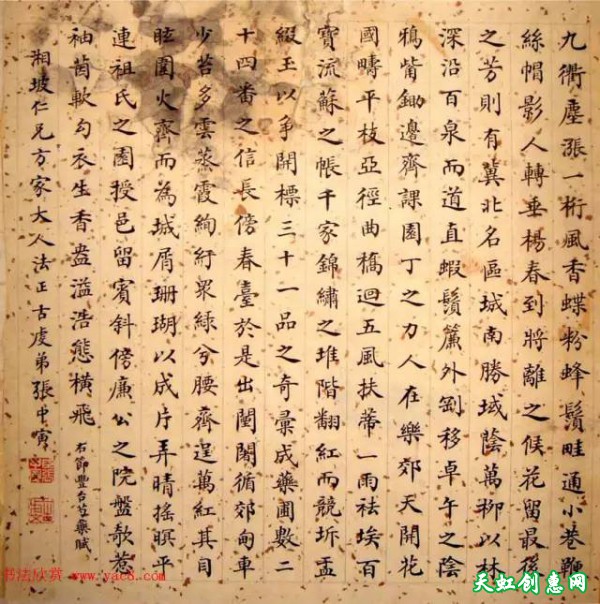 九衢塵漲一桁風香蝶粉蜂鬚畦通小巷鞭
絲帽影人轉垂楊春到將離之候花留最後
之芳則有冀北名區城南勝域陰萬柳以林
深沿百泉而道直蝦鬚簾外劚移卓午之陰
鴉觜鋤邊齊課園丁之力人在樂郊天開花
國疇平枝亞徑曲橋迴五風扶蒂一雨祛埃百
寶流蘇之帳千家錦繡之堆階翻紅而競坼盂
綴玉以爭開標三十一品之奇彙成藥圃數二
十四番之信長傍春臺於是出闉闍循郊甸車
少苔多雲蒸霞絢紆眾綠兮腰齊逞萬紅其目
眩圍火齊而為城屑珊瑚以成片弄晴搖暝平
連祖氏之園授邑留賓斜傍廉公之院盤欹惹
袖茵軟勾衣生香盎溢浩態橫飛
右節豐台芍藥賦
湘坡仁兄方家大人法正古虞弟張中寅
书法欣赏 www.yac8.com
天虹创意网